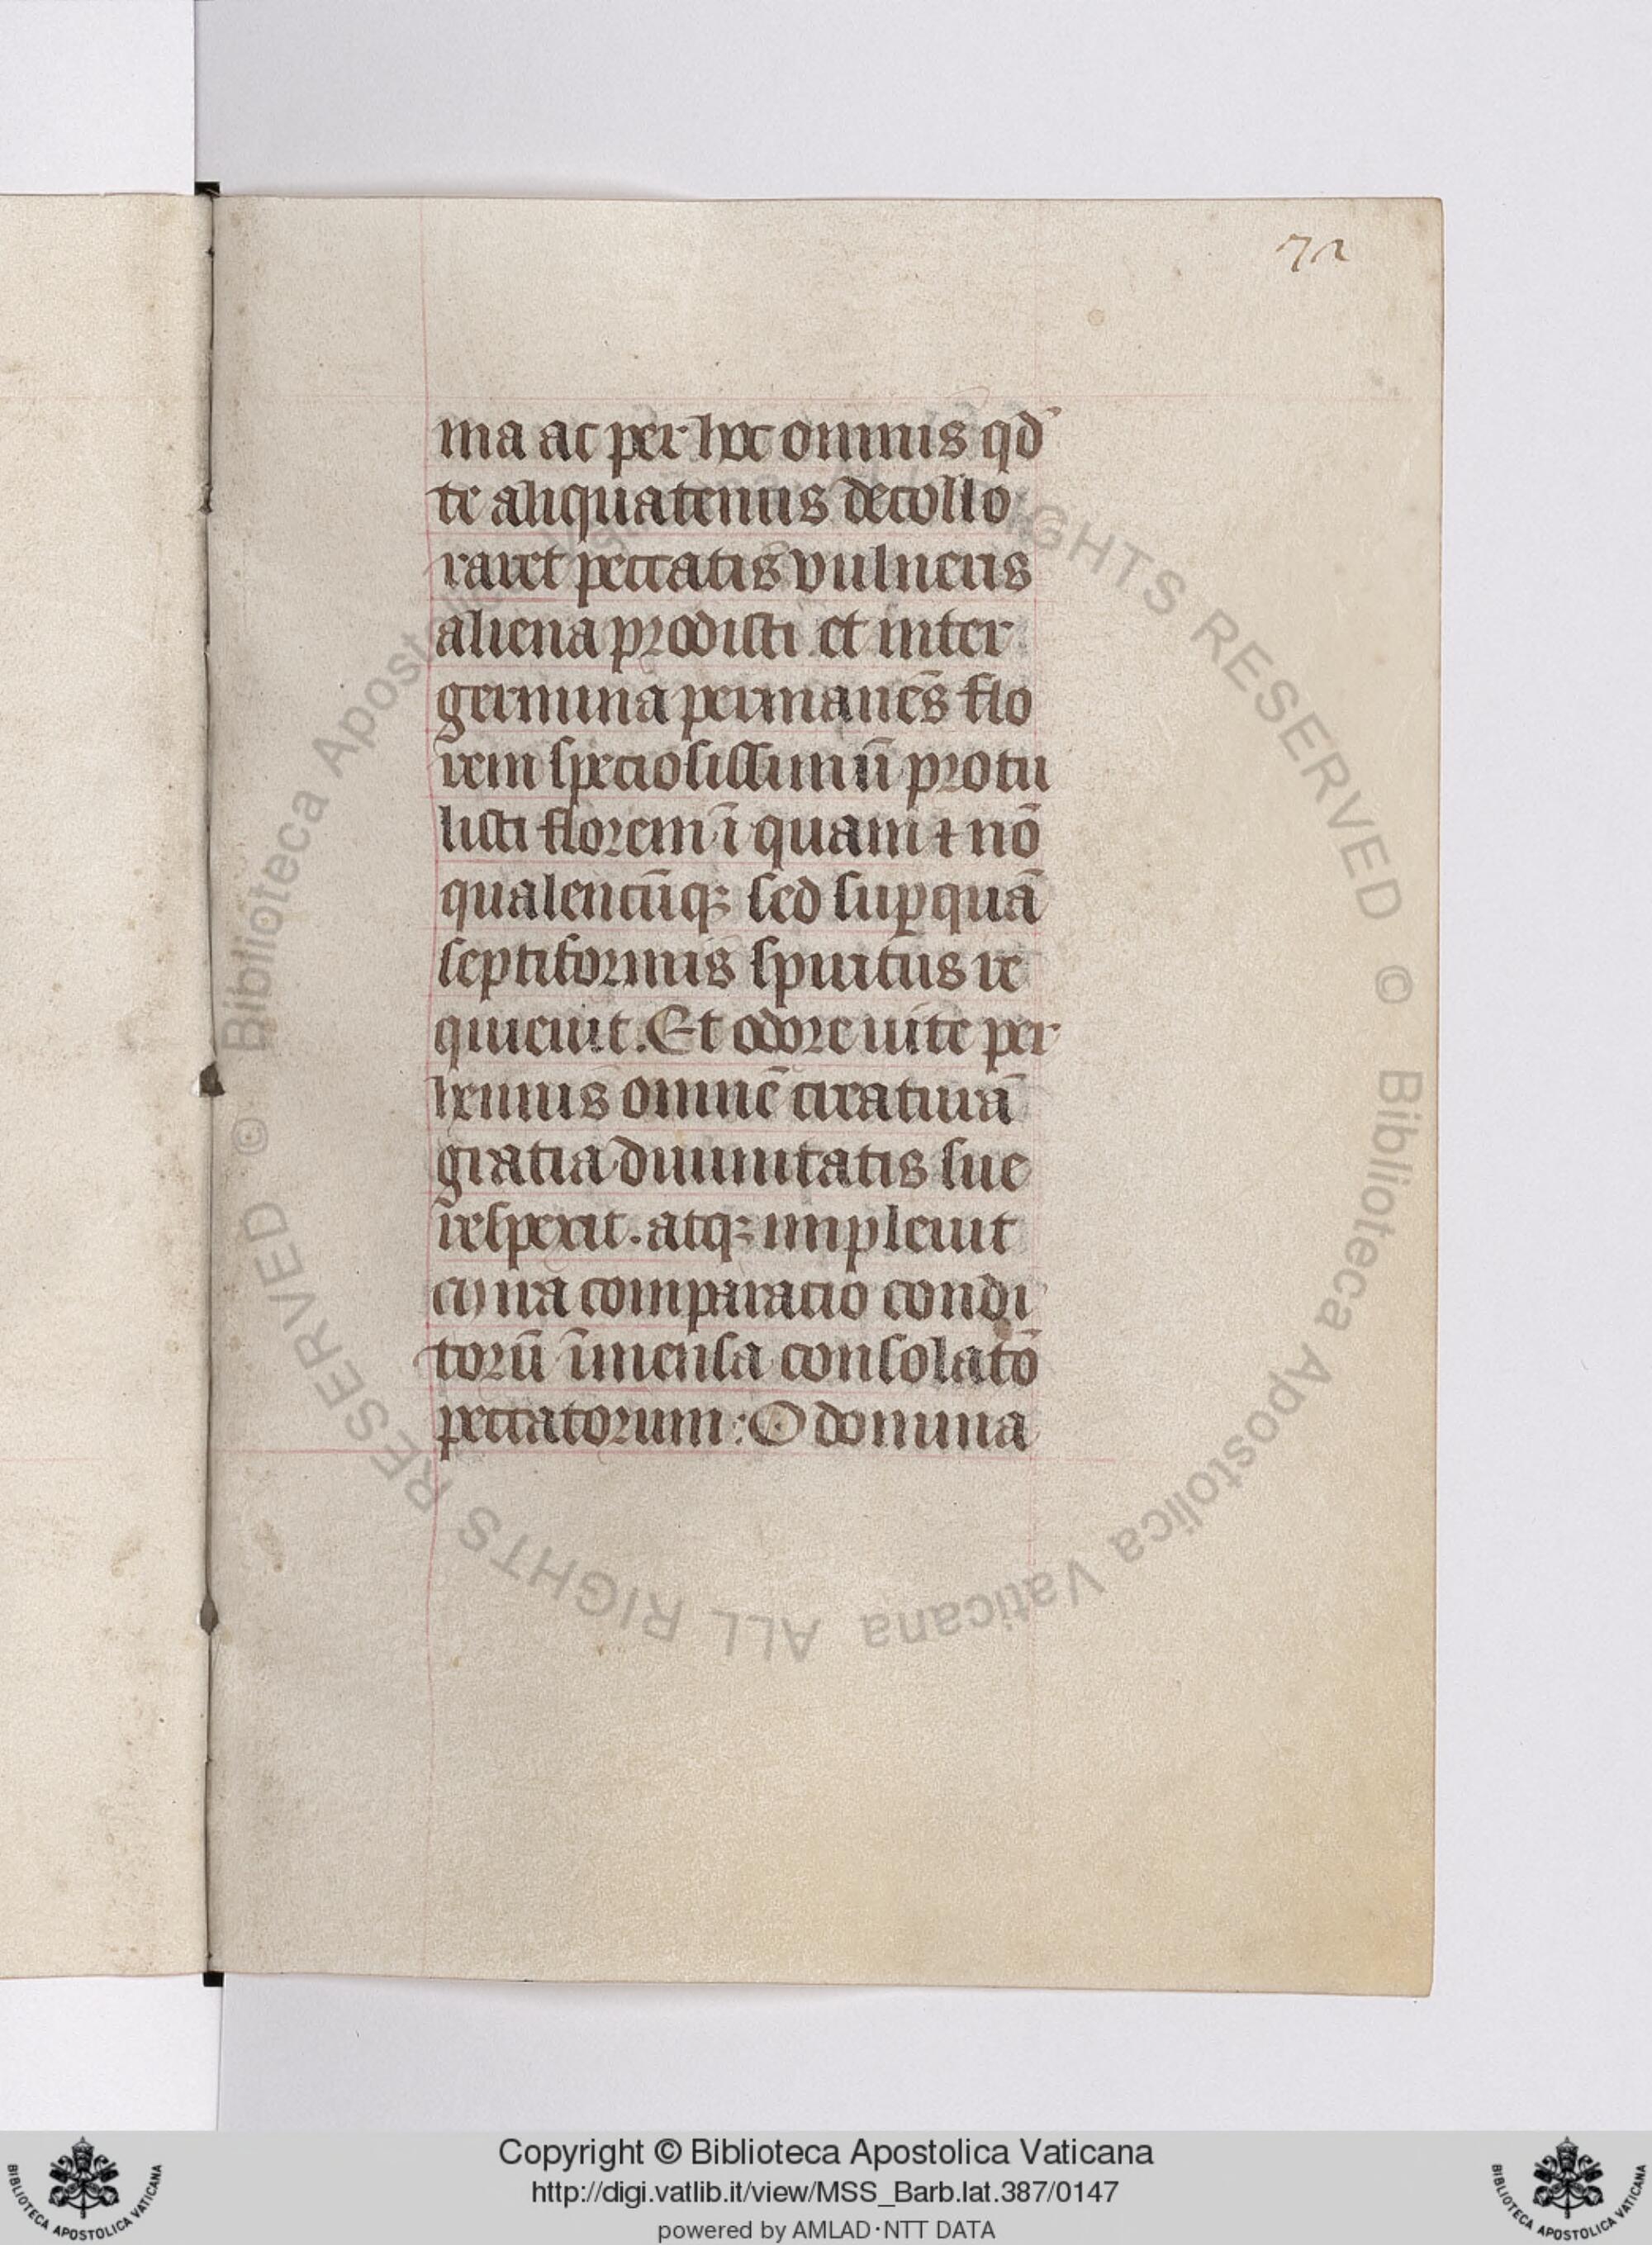 72
ma ac per hoc omnis qd'
te aliquatenus decollo
raret peccatis vulneris
aliena prodisti et inter
germina permanēs flo
rem speciosissimū protu
listi florem ī quam ⁊ nō
qualencūq; sed suꝑquā
septiformis spiritus re
quieuit. Et odore uite per
hennis omnē creaturā
gratia diuinitatis sue
respexit. atq; impleuit
comparacio condi
torū īmensa consolatō
peccatorum : O domina
© Biblioteca Apostolica Vaticana ALL RIGHTS RESERVED
Copyright © Biblioteca Apostolica Vaticana
http://digi.vatlib.it/view/MSS_Barb.lat.387/0147
powered by AMLAD·NTT DATA
BIBLIOTECA APOSTOLICA VATICANA
BIBLIOTECA APOSTOLICA VATICANA